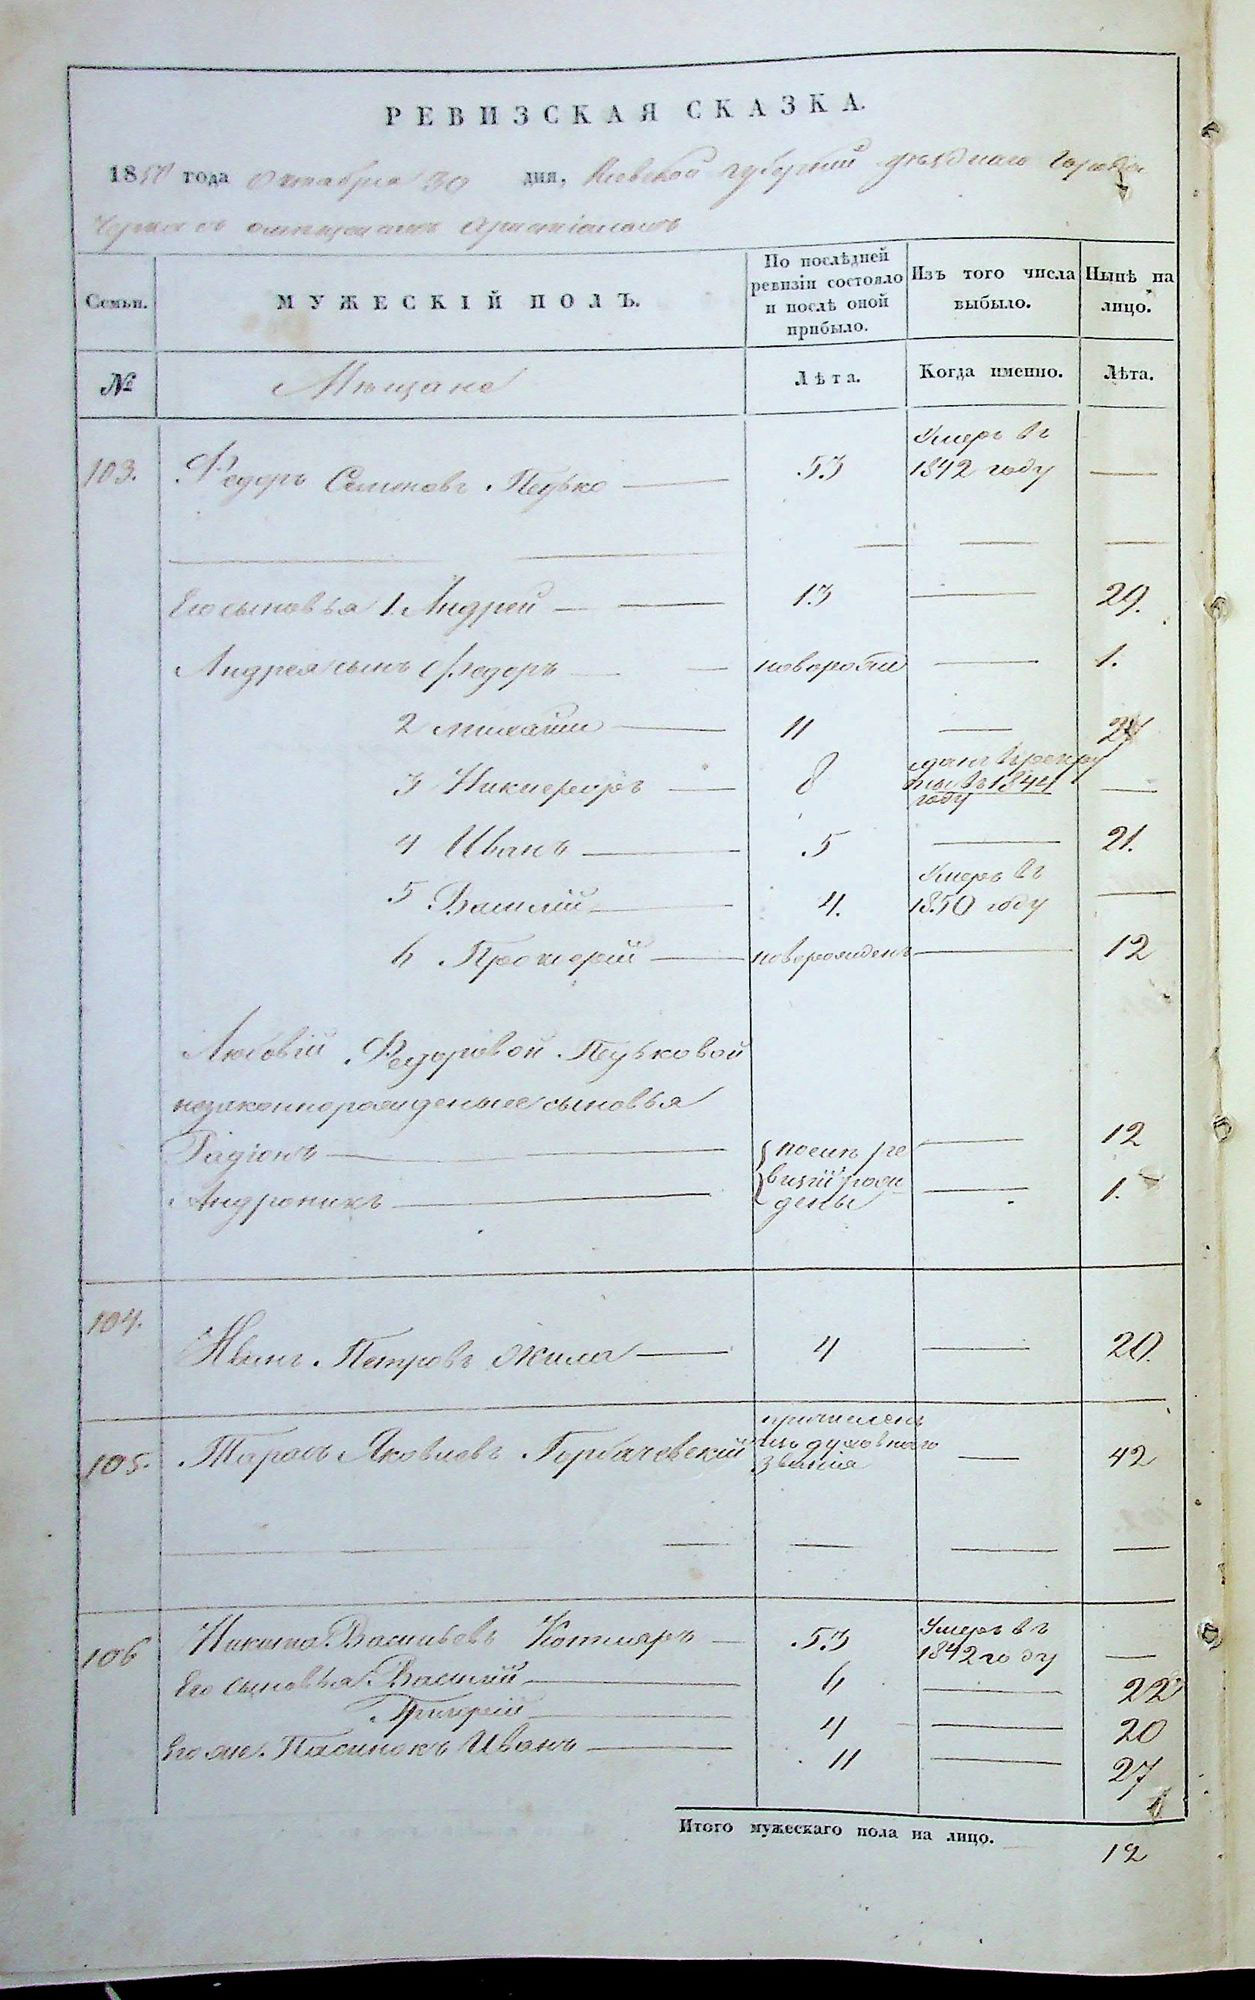 РЕВИЗСКАЯ СКАЗКА.
1850 года Октября 30 дня, Киевской губернии уѣзднаго города
Черкасъ
Семьи. МУЖЕСКІЙ ПОЛЪ. По послѣдней ревизіи состояло и послѣ оной прибыло. Изъ того числа выбыло. Нынѣ на лицо.
№ Мѣщане Лѣта. Когда именно. Лѣта.
103. Федоръ Семеновъ Пецько — 53 Умеръ въ 1842 году —
Его сыновья 1. Андрей — 13 — 29.
Андрея сынъ Федоръ — новорожд — 1.
2 Михаилъ — 11 — 27
3 Никифоръ — 8 сданъ в рекруты въ 1844 году —
4 Иванъ — 5 — 21.
5 Василій — 4. Умеръ въ 1850 году —
6 Прокофій — новорожденъ — 12
Любовій Федоровой Пецьковой
незаконнорожденые сыновья
Радіонъ — послѣ ревизіи рождены — 12
Андроникъ — — 1.
104. Иванъ Петровъ — 4 — 20.
105. Тарасъ Яковлевъ Горбачевскій причисленъ изъ духовнаго званія — 42
106 Никита Васильевъ Котляръ — 53 Умеръ въ 1842 году —
Его сыновья Василій — 6 — 22
Григорій — 4 — 20
Его же Пасинокъ Иванъ — 11 — 27
Итого мужескаго пола на лицо. 12